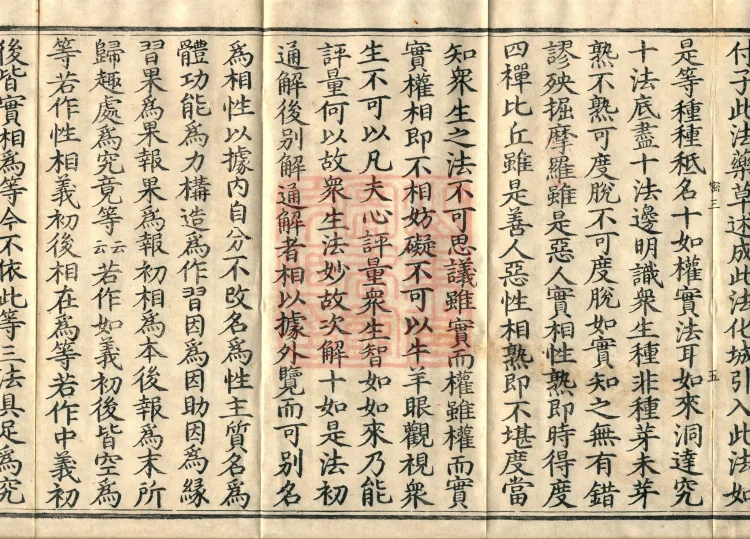 付子此法藥草述成此法化城引入此法如
是等種種秪名十如權實法耳如來洞達究
十法底盡十法邊明識衆生種非種芽未芽
熟不熟可度脫不可度脫如實知之無有錯
謬殃掘摩羅雖是惡人實相性熟即時得度
四禪比丘雖是善人惡性相熟即不堪度當
知衆生之法不可思議雖實而權雖權而實
實權相即不相妨礙不可以牛羊眼觀視衆
生不可以凡夫心評量衆生智如如來乃能
評量何以故衆生法妙故次解十如是法初
通解後别解通解者相以據外覽而可别名
爲相性以據內自分不改名爲性主質名爲
體功能爲力構造爲作習因爲因助因爲緣
習果爲果報果爲報初相爲本後報爲末所
歸趣處爲究竟等云云若作如義初後皆空爲
等若作性相義初後相在爲等若作中義初
後皆實相爲等今不依此等三法具足爲究
三
五